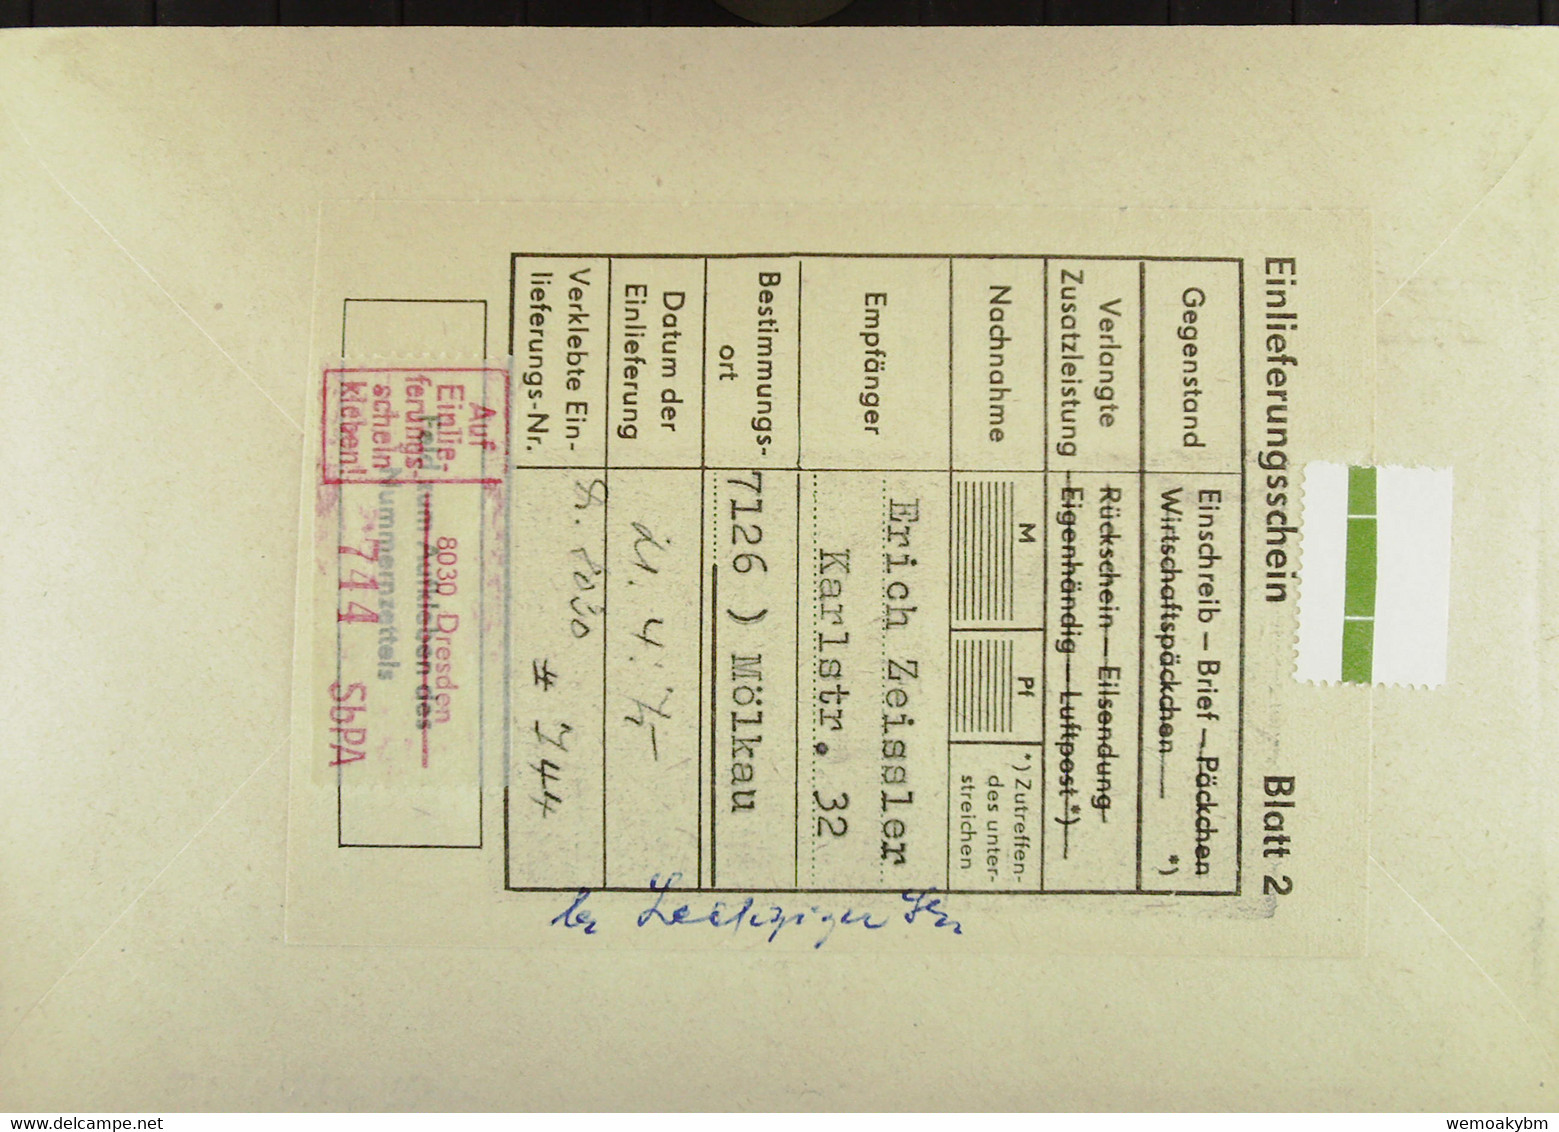 Einlieferungsschein Blatt 2
Gegenstand
Einschreib – Brief – Päckchen
Wirtschaftspäckchen *)
Verlangte
Zusatzleistung
Rückschein – Eilsendung
Eigenhändig – Luftpost *)
Nachnahme
M
Pf
*) Zutreffen-
des unter-
streichen
Empfänger
Erich Zeissler
Karlstr. 32
Bestimmungs-
ort
7126 ) Mölkau
Datum der
Einlieferung
21. 4.
Verklebte Ein-
lieferungs-Nr.
8030
# 744
Auf
Einlie-
ferungs-
schein
kleben!
8030 Dresden
744 SbPA
Feld zum Aufkleben des
Nummernzettels
www.delcampe.net
wemoakybm